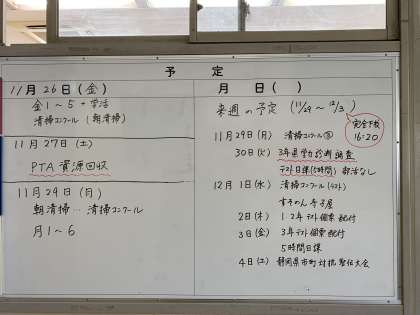 予 定
11月26日(金)
金1~5+学活
清掃コンクール(朝清掃)
11月27日(土)
PTA資源回収
11月29日(月)
朝清掃…清掃コンクール
月1~6
月 日( )
来週の予定(11/29~12/3)
完全下校
16:20
11月29日(月) 清掃コンクール
30日(火) 3年県学力診断調査
テスト日課(5時間) 部活なし
12月1日(水) 清掃コンクール(ラスト)
すそのん寺子屋
2日(木) 1・2年テスト個票配付
3日(金) 3年テスト個票配付
5時間日課
4日(土) 静岡県市町対抗駅伝大会